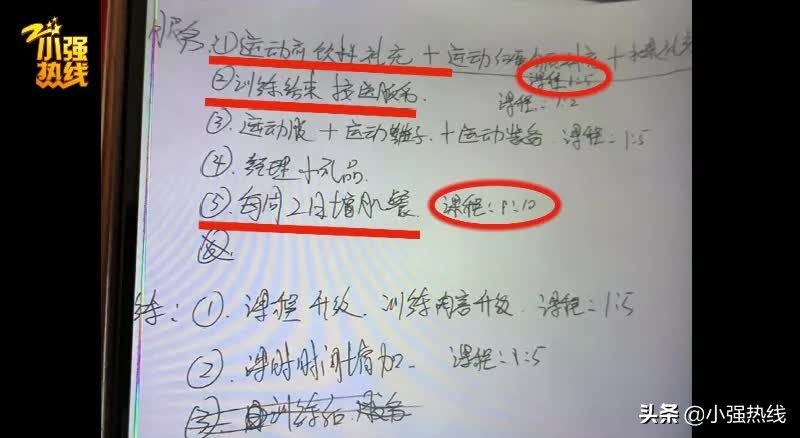 小强热线
服务:①运动前饮料补充+运动后 补充+ 补充
课程1:5
②训练结束 接送服务.
课程:1:2
③.运动服+运动鞋子.+运动装备 课程:1:5
④.经理小礼品.
⑤.每周2日增肌餐. 课程:1:10
⑥.
练:①.课程升级.训练内容升级.课程=1:5
②.课时时间增加.. 课程:1:5
③. 训练后 服务
头条 @小强热线